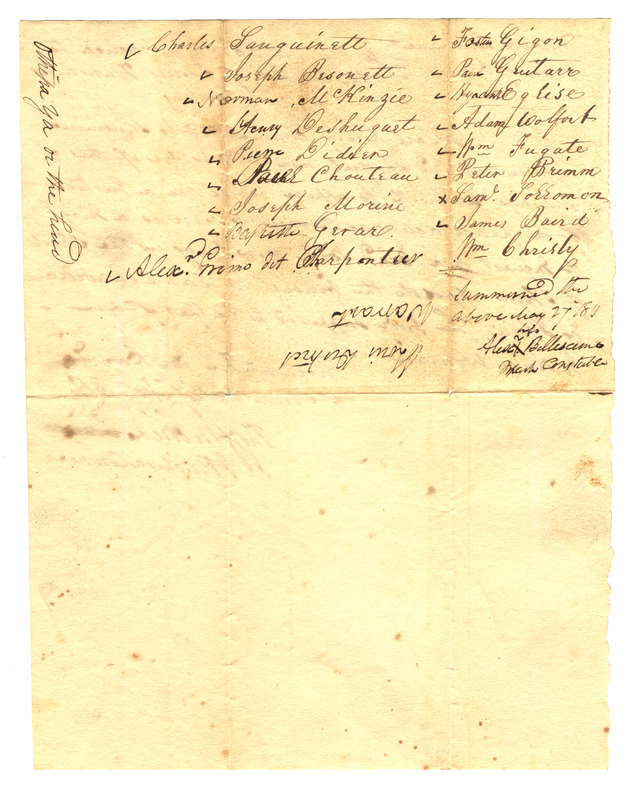 Charles Sanguinett
Joseph Besonett
Norman McKinzie
Henry Deshuquet
Pierre Didier
Paul Chouteau
Joseph Morine
Baptiste Gerar
Alexr. Primo dit Charpentier
Foster Gigon
Paul Guitarr
Eglise
Adam Wolfort
Wm Fugate
Peter Primm
X Saml. Sollomon
James Baird
Wm Chrisly
Summoned the
above May 27th 1811
his
Alexr X Bellissime
mark Constable
Warrant
or the head